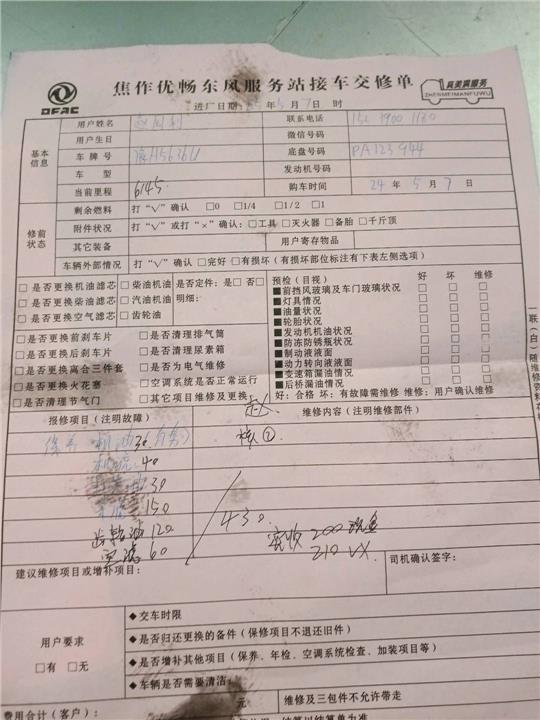 DFAC
焦作优畅东风服务站接车交修单
真美满服务
ZHENMEIMANFUWU
进厂日期 年 5 月 7 日 时
用户姓名 联系电话
用户生日 微信号码
基本信息
车牌号 底盘号码 PA123944
车型 发动机号码
当前里程 6145 购车时间 24 年 5 月 7 日
修前状态
剩余燃料 打“√”确认 □0 □1/4 □1/2 □1
附件状况 打“√”或打“×”确认：□工具 □灭火器 □备胎 □千斤顶
其它装备 用户寄存物品
车辆外部情况 打“√”确认 □完好 □有损坏（有损坏部位标注有下表左侧选项）
□是否更换机油滤芯 □柴油机油 是否定件：是□ 否□
□是否更换柴油滤芯 □汽油机油 明细：
□是否更换空气滤芯 □齿轮油
□是否更换前刹车片 □是否清理排气筒
□是否更换后刹车片 □是否清理尿素箱
□是否更换离合三件套 □是否为电气维修
□是否更换火花塞 □空调系统是否正常运行
□是否清理节气门 □其它项目维修及更换：
预检（目视） 好 坏 维修
■前挡风玻璃及车门玻璃状况 □ □ □
■灯具情况 □ □ □
■油量状况 □ □ □
■轮胎状况 □ □ □
■发动机机油状况 □ □ □
■防冻防锈瓶状况 □ □ □
■制动液液面 □ □ □
■动力转向液液面 □ □ □
■变速箱漏油情况 □ □ □
■后桥漏油情况 □ □ □
好：合格 坏：有故障需维修 维修：用户确认维修
报修项目（注明故障） 维修内容（注明维修部件）
保养 机油 30
机滤 40
30
150
齿轮油 120
空滤 60
430
实收 200 现金
210 VX
建议维修项目或增补项目： 司机确认签字：
用户要求
□有 □无
◆交车时限
◆是否归还更换的备件（保修项目不退还旧件）
◆是否增补其他项目（保养、年检、空调系统检查、加装项目等）
◆车辆是否需要清洁：
费用合计（客户）： 元 维修及三包件不允许带走